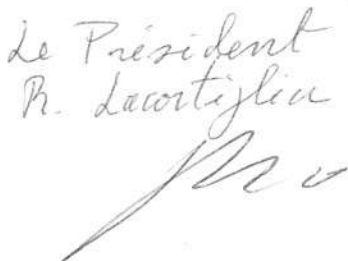 Le Président
R. Lacortiglia